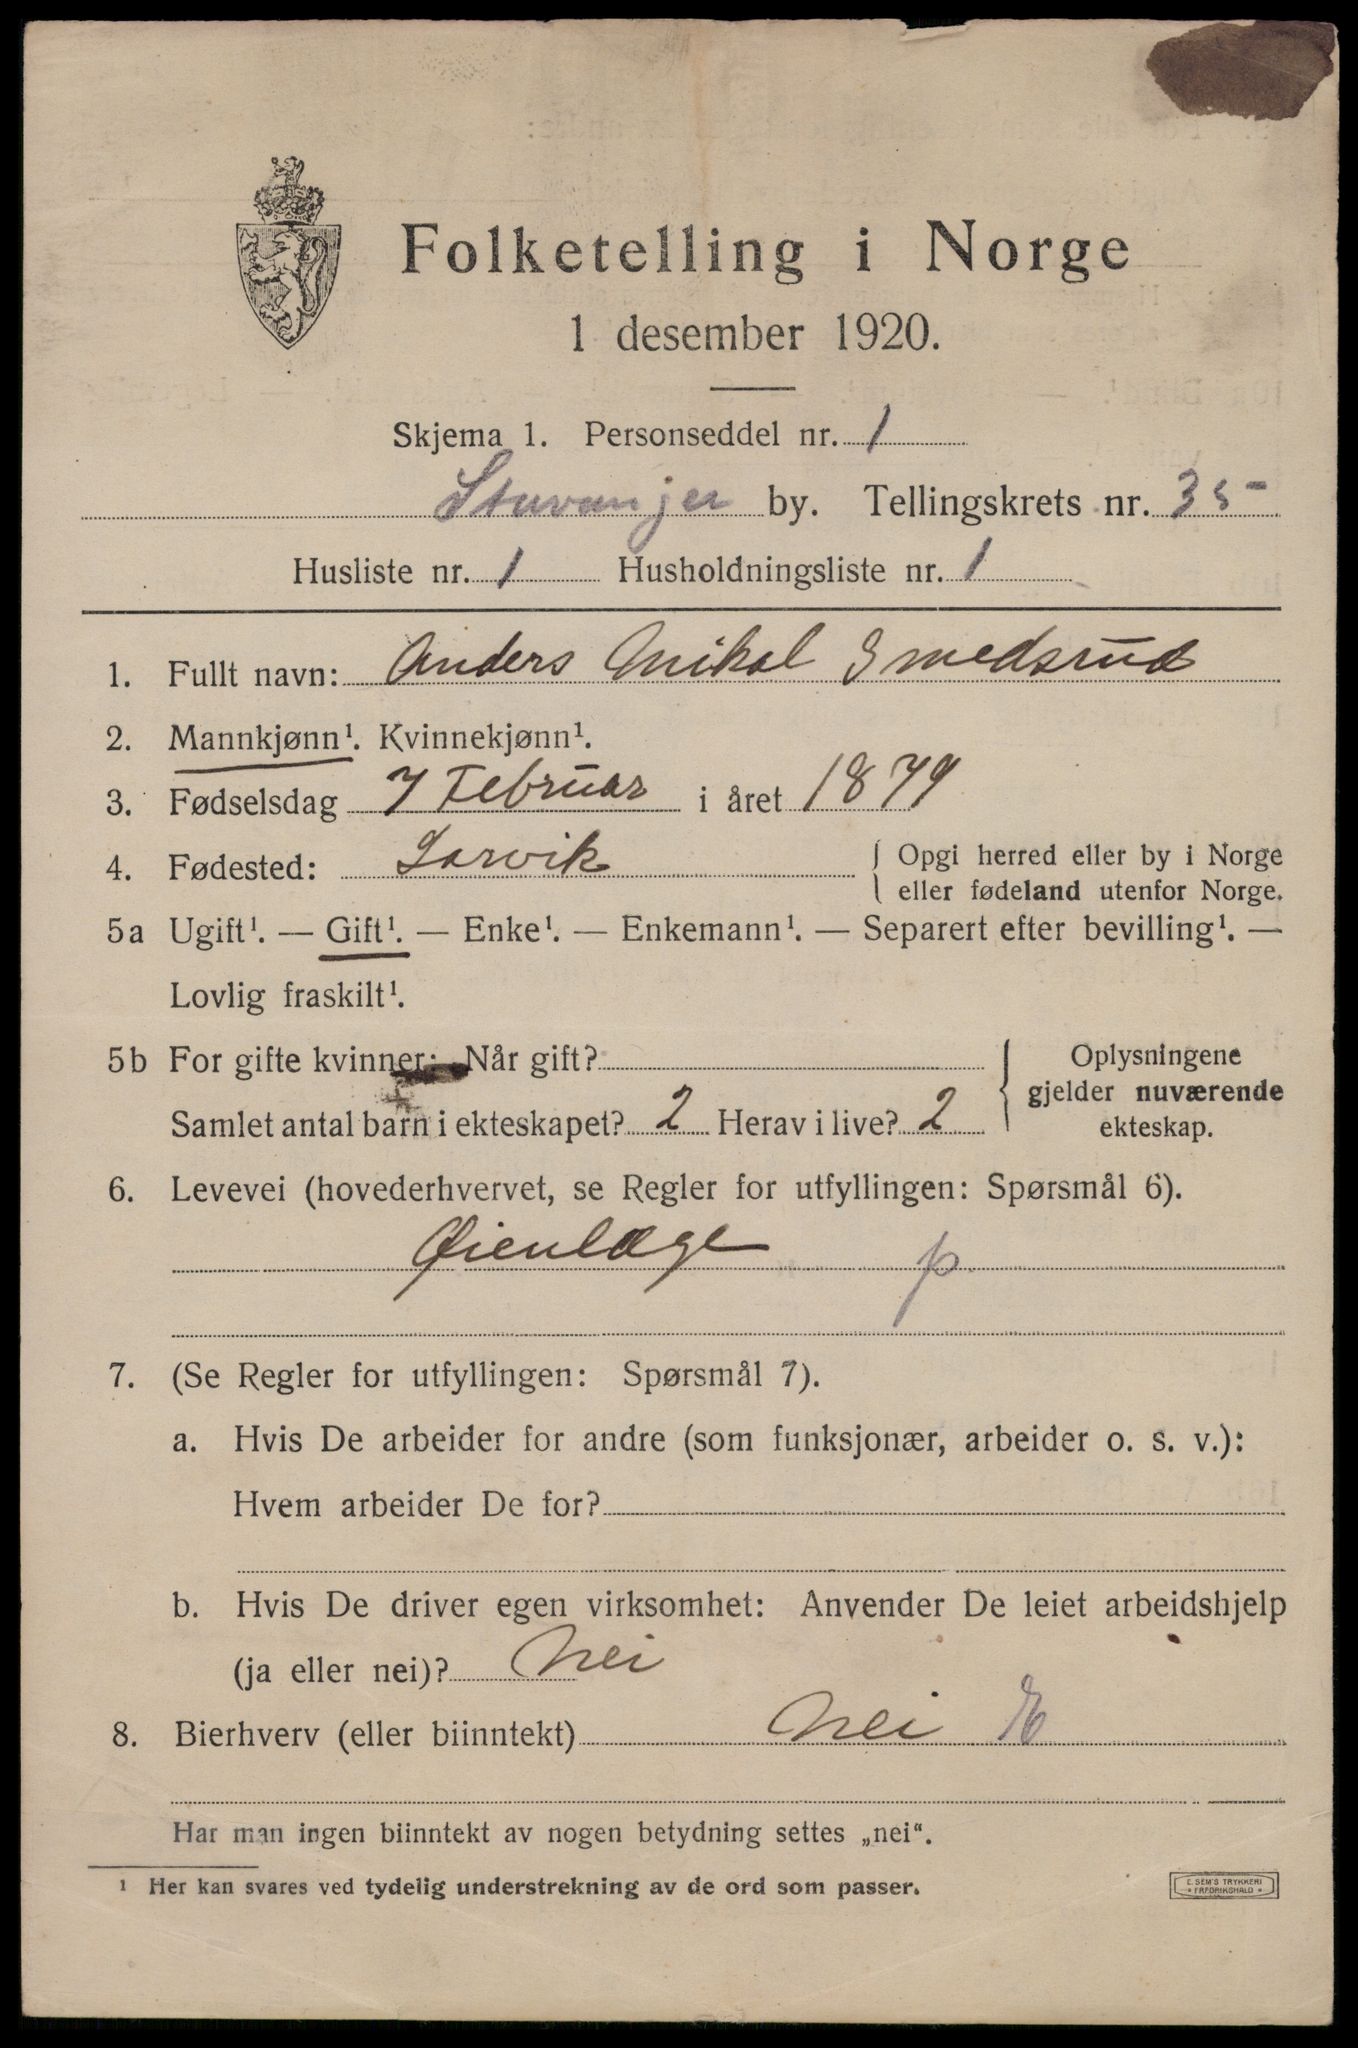 Folketelling i Norge
1 desember 1920.
Skjema 1. Personseddel nr. 1
Stavanger by. Tellingskrets nr. 35
Husliste nr. 1 Husholdningsliste nr. 1
1. Fullt navn: Anders Mikal Smedsrud
2. Mannkjønn¹. Kvinnekjønn¹.
3. Fødselsdag 7 Februar i året 1879
4. Fødested: Larvik { Opgi herred eller by i Norge
eller fødeland utenfor Norge.
5a Ugift¹. — Gift¹. — Enke¹. — Enkemann¹. — Separert efter bevilling¹. —
Lovlig fraskilt¹.
5b For gifte kvinner: Når gift?
Samlet antal barn i ekteskapet? 2 Herav i live? 2
Oplysningene
gjelder nuværende
ekteskap.
6. Levevei (hovederhvervet, se Regler for utfyllingen: Spørsmål 6).
Øienlæge p.
7. (Se Regler for utfyllingen: Spørsmål 7).
a. Hvis De arbeider for andre (som funksjonær, arbeider o. s. v.):
Hvem arbeider De for?
b. Hvis De driver egen virksomhet: Anvender De leiet arbeidshjelp
(ja eller nei)? Nei
8. Bierhverv (eller biinntekt) Nei E
Har man ingen biinntekt av nogen betydning settes „nei“.
¹ Her kan svares ved tydelig understrekning av de ord som passer.
E. SEM'S TRYKKERI
* FREDRIKSHALD *